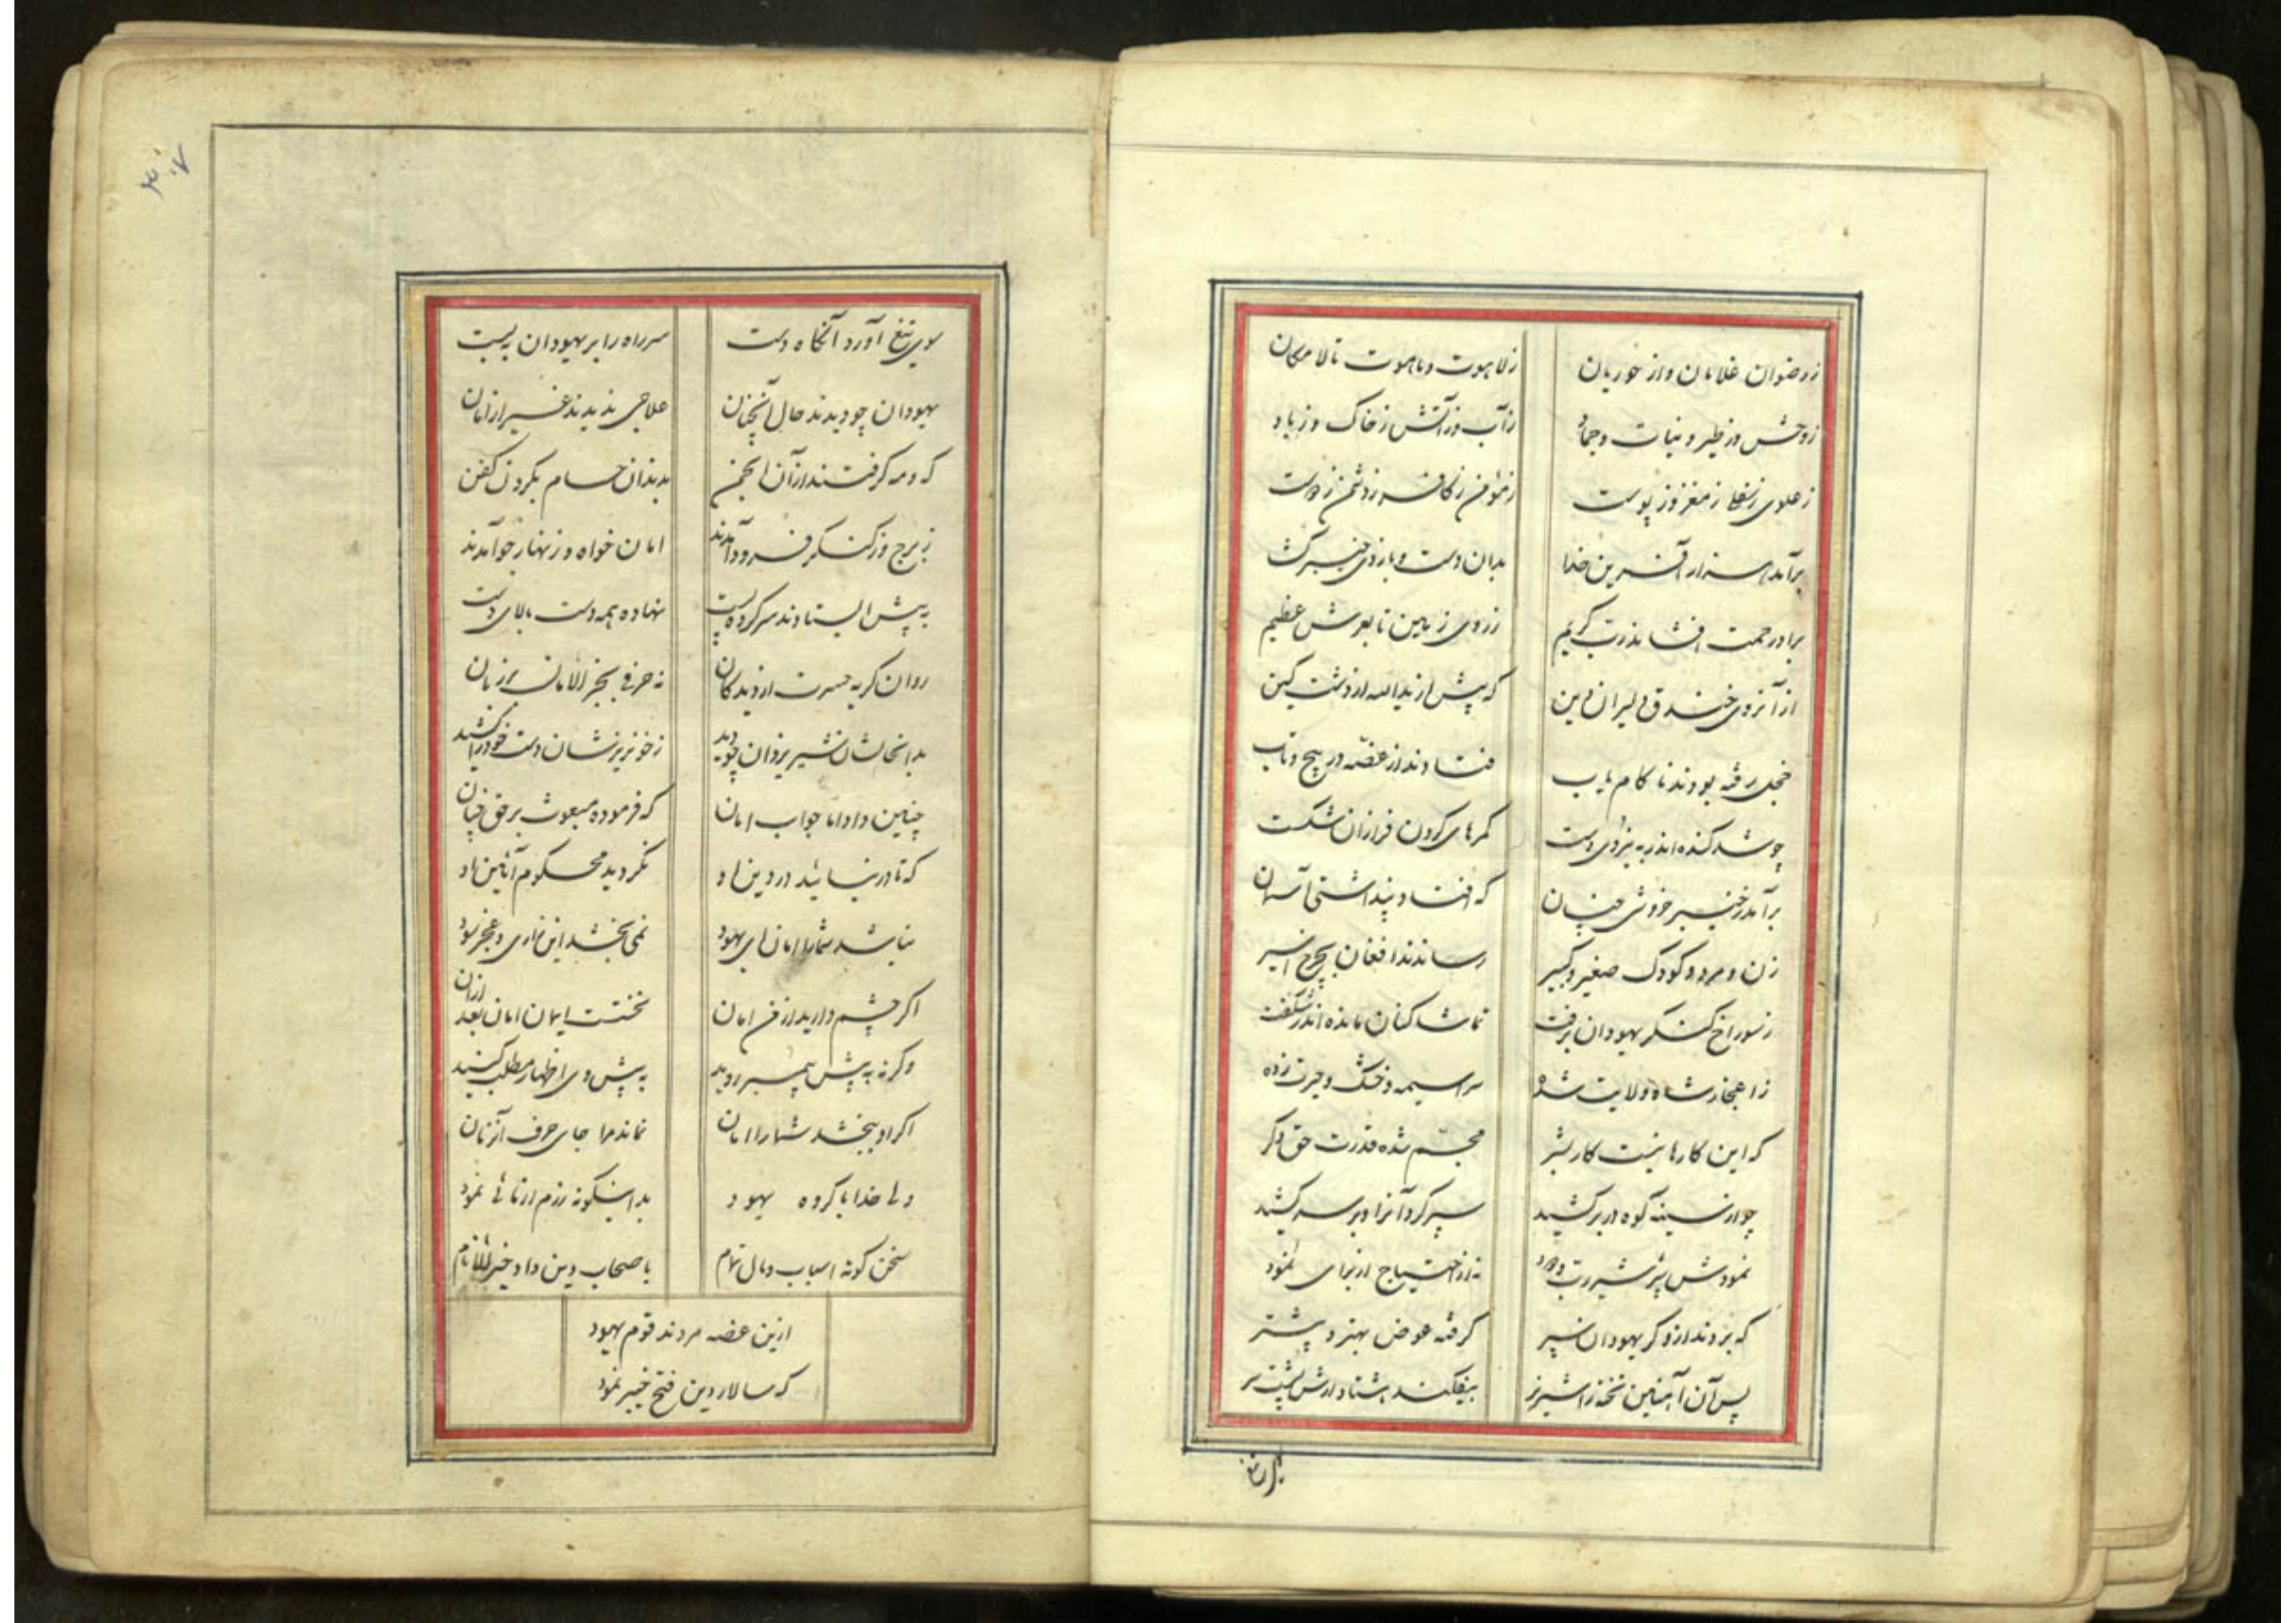 ز رضوان غلامان و از حوریان
ز لاهوت و ناسوت تا لا مکان
ز وحش و ز طیر و نبات و جماد
ز آب و ز آتش ز خاک و ز باد
ز علوی ز سفلی ز مغز و ز پوست
ز مؤمن ز کافر ز دشمن ز دوست
برآمد هزار آفرین خدا
بدان دست و بازوی خیبر گشا
برو رحمت افشاند رب کریم
ز روی زمین تا بعرش عظیم
از آنروی خندق دلیران دین
که پیش از یدالله از دشت کین
خجل رفته بودند ناکام یاب
فتادند از غصه در پیچ و تاب
چو شد کنده اندر به نیروی دست
کمرهای گردن فرازان شکست
برآمد ز خیبر خروش چنان
که افتاد پنداشتی آسمان
زن و مرد و کودک صغیر و کبیر
رساندند افغان بچرخ اثیر
ز سوراخ کنگر یهودان برفت
تماشا کنان مانده اندر شگفت
ز اعجاز شاه ولایت شده
سراسیمه و خشک و حیرت زده
که این کارها نیست کار بشر
مجسم شده قدرت حق مگر
چو از سینه کوه در برکشید
سپر کرد آنرا و بر سر کشید
نمودش سپر شیر رب ودود
نه از احتیاج از برای نمود
که بردند از وکر یهودان سپر
گرفته عوض بهتر و پیشتر
پس آن آهنین تخته را شیر نر
بیفکند هشتاد ارش پشت سر
سوی تیغ آورد آنگاه دست
سر راه را بر یهودان ببست
یهودان چو دیدند حال آنچنان
علاجی ندیدند غیر از امان
که و مه گرفتند از آن انجمن
بدندان حسام بگردن کفن
ز برج و ز کنگر فرود آمدند
امان خواه و زنهار جو آمدند
به پیش ایستادند سر کرده پست
نهاده همه دست بالای دست
روان گریه حسرت از دیدگان
نه حرفی بجز الامان بر زبان
بدانحالشان شیر یزدان چو دید
ز خونریزشان دست خود را کشید
چنین داد اما جواب امان
که فرموده مبعوث بر حق چنان
که تا در نیائید در دین او
نگردید محکوم آئین او
نباشد شما را امان ای یهود
نمی بخشد این زاری و عجز سود
اگر چشم دارید از من امان
نخست ایمان امان بعد ازان
وگرنه به پیش پیمبر روید
به پیش وی اظهار مطلب کنید
اگر او ببخشد شما را امان
نماند مرا جای حرف آنزمان
ولی خدا با گروه یهود
بداینگونه رزم آزمائی نمود
سخن کوته اسباب و مال تمام
باصحاب دین داد خیر الانام
ازین غصه مردند قوم یهود
که سالار دین فتح خیبر نمود